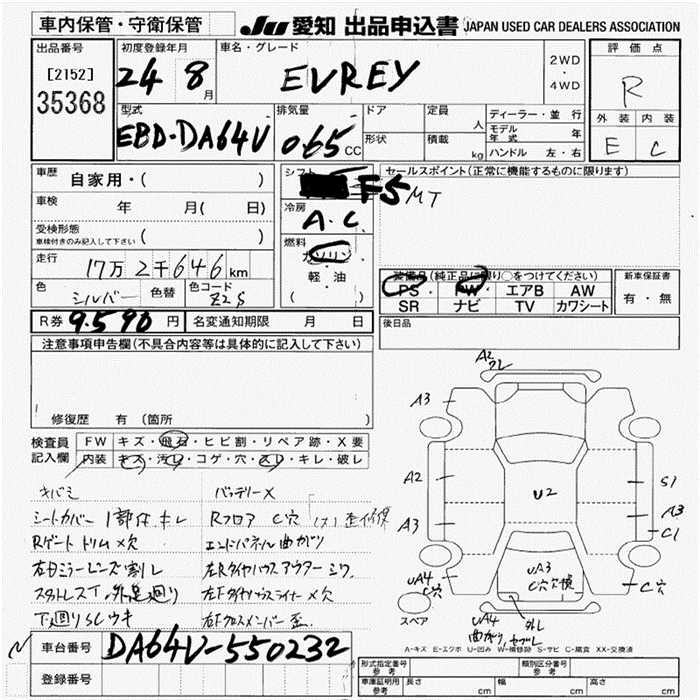 車内保管・守衛保管
JU 愛知 出品申込書 JAPAN USED CAR DEALERS ASSOCIATION
出品番号
[2152]
35368
初度登録年月
24 8月
車名・グレード
EVREY
2WD
・
4WD
評価点
R
外装 内装
E C
型式
EBD-DA64V
排気量
065cc
ドア
形状
定員 人
積載 kg
ディーラー・並行
モデル年式 年
ハンドル 左・右
車歴 自家用・( )
車検 年 月( 日)
受検形態
車検付きのみ記入して下さい ( )
走行
17万 2千646km
色 シルバー 色替 色コード Z2S
R券 9.590円 名変通知期限 月 日
シフト
F5 MT
冷房
A.C
燃料
ガソリン
軽・油
( )
セールスポイント(正常に機能するものに限ります)
装備品(純正品に限り○をつけてください)
PS・PW・エアB AW
SR ナビ TV カワシート
新車保証書
有・無
後日品
注意事項申告欄(不具合内容等は具体的に記入して下さい)
修復歴 有(箇所
検査員記入欄
FW キズ・飛石・ヒビ割・リペア跡・X要
内装 キズ・汚レ・コゲ・穴・スレ・キレ・破レ
キバミ バッテリーX
シートカバー 1部付、キレ Rフロア C穴
Rゲートトリム X欠 エンドパネル曲がり
左Bミラーレンズ割レ 左Rタイヤハウスアウター シワ
スタトレスT、外足廻り 左Fタイヤハウスライナー X欠
下廻りSCウキ 右Fクロスメンバー歪
車台番号 DA64V-550232
登録番号
A2
クレ
A3
A2
A3
U2
S1
A3
C1
UA4
C穴
UA3
C穴欠損
C穴
スペア
UA4
曲がり、
外レ
A-キズ E-エクボ U-凹み W-補修跡 S-サビ C-腐食 XX-交換済
形式指定番号 参考 類別区分番号 参考
車庫証明用 参考 長さ cm 幅 cm 高さ cm